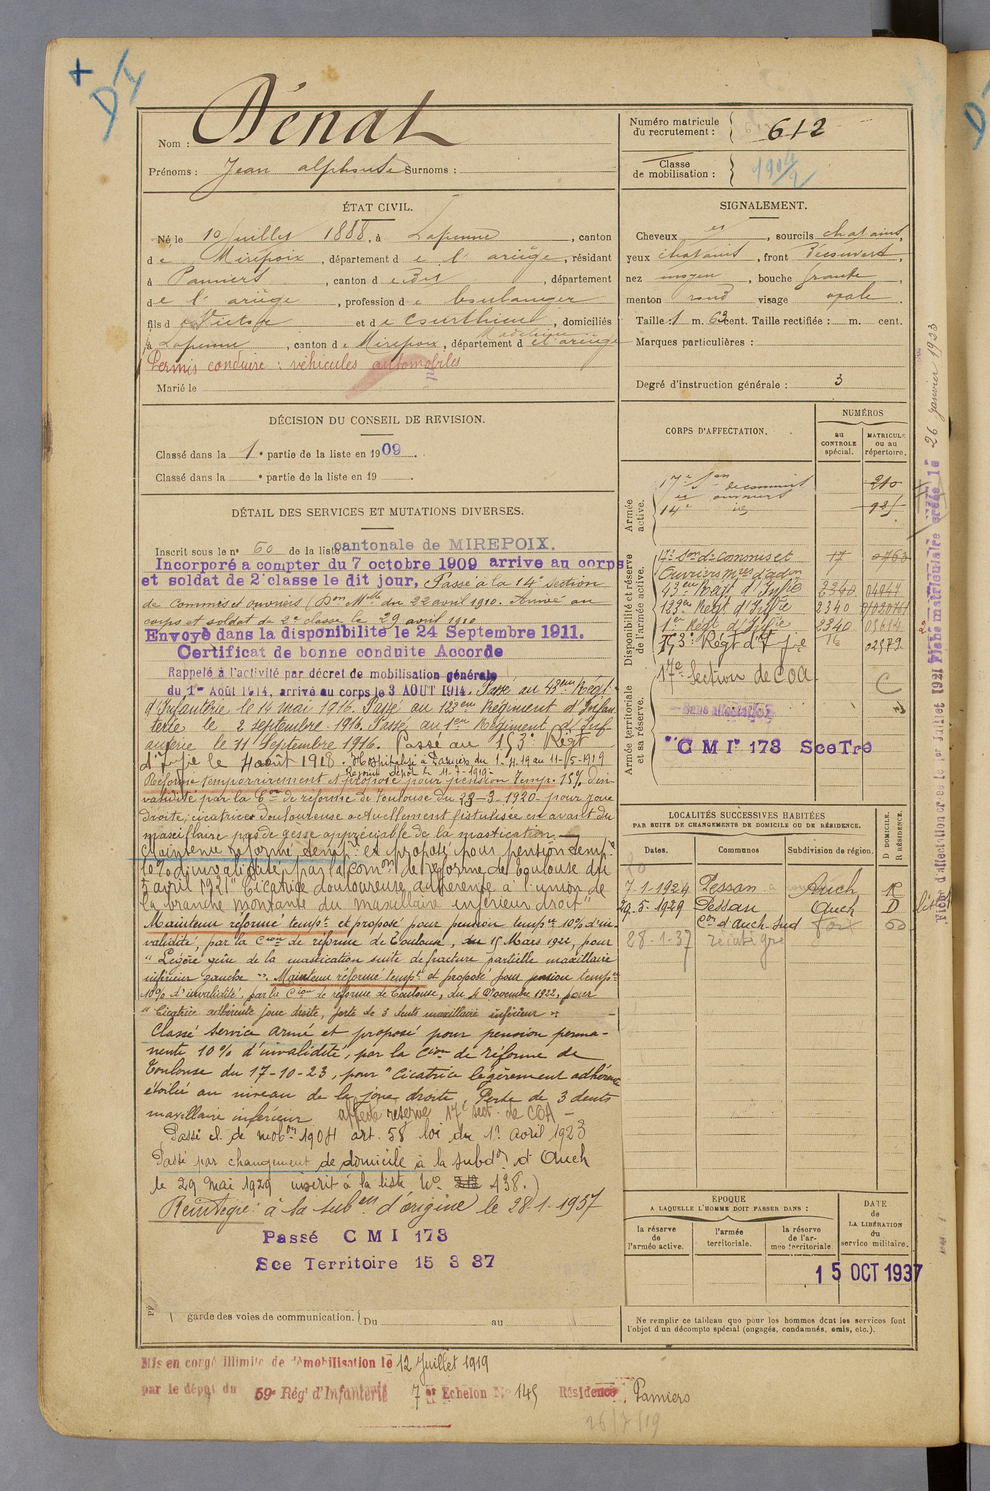 Nom : Dénat
Prénoms : Jean alphonse Surnoms :
ÉTAT CIVIL.
Né le 10 juillet 1888, à Lapenne, canton
de Mirepoix, département de l'ariège, résidant
à Pamiers, canton de Dit, département
de l'ariège, profession de boulanger
fils de Victor et de, domiciliés
à Lapenne, canton de Mirepoix, département de l'ariège
Permis conduire : véhicules automobiles
Marié le
DÉCISION DU CONSEIL DE REVISION.
Classé dans la 1e partie de la liste en 1909.
Classé dans la e partie de la liste en 19 .
DÉTAIL DES SERVICES ET MUTATIONS DIVERSES.
Inscrit sous le n° 60 de la liste cantonale de MIREPOIX.
Incorporé a compter du 7 octobre 1909 arrive au corps
et soldat de 2e classe le dit jour, Passé à la 14e Section
de commis et ouvriers du 22 avril 1910. Arrivé au
corps et soldat de 2e classe le 29 avril 1910
Envoyé dans la disponibilité le 24 Septembre 1911.
Certificat de bonne conduite Accorde
Rappelé à l'activité par décret de mobilisation générale
du 1er Août 1914, arrivé au corps le 3 AOUT 1914. Passé au 43eme Régt
d'Infanterie le 14 mai 1916. Passé au 122eme Régiment d'Infan
terie le 2 septembre 1916. Passé au 1er Régiment d'Inf
anterie le 11 Septembre 1916. Passé au 153e Régt
d'Infie le 4 août 1918. Hospitalisé à Tarbes du 1.4.19 au 11-5-1919
Rejoint dépôt le 11-7-1919.
Réformé temporairement et proposé pour pension temp. 15% d'in
validité par la Con de réforme de Toulouse du 23-3-1920 pour joue
droite, cicatrice douloureuse actuellement fistulisée en avant du
maxillaire pas de gène appréciable de la mastication.
Maintenu réformé temp. et proposé pour pension temp.
10% d'invalidité par la Comon de réforme de Toulouse du
5 avril 1921 "Cicatrice douloureuse adhérente à l'union de
la branche montante du maxillaire inférieur droit"
Maintenu réformé tempre et proposé pour pension tempre 10% d'in
validité, par la Cion de réforme de Toulouse, du 15 Mars 1922, pour
"Légère gêne de la mastication suite de fracture partielle maxillaire
inférieur gauche". Maintenu réformé tempre et proposé pour pension tempre
10% d'invalidité par la Cion de réforme de Toulouse, du 4 Novembre 1922, pour
"Cicatrice adhérente joue droite, perte de 3 dents maxillaire inférieur".
Classé Service Armé et proposé pour pension perma-
nente 10% d'invalidité, par la Cion de réforme de
Toulouse du 17-10-23, pour "Cicatrice légèrement adhérente
étoilée au niveau de la joue droite, Perte de 3 dents
maxillaire inférieur affecté réserve 17e sect. de COA -
Passé cl. de mobon 1904 art. 58 loi du 1er avril 1923
Passé par changement de domicile à la subdon d'Auch
le 29 mai 1929 inscrit à la liste No 438.)
Réintégré à la subon d'origine le 28-1-1937
Passé C M I 173
Sce Territoire 15 3 37
garde des voies de communication. Du au
Numéro matricule du recrutement : 612
Classe de mobilisation : 1904/2
SIGNALEMENT.
Cheveux et, sourcils chatains,
yeux chatains, front Découvert,
nez moyen, bouche grande
menton rond visage ovale
Taille : 1 m. 63 cent. Taille rectifiée : m. cent.
Marques particulières :
Degré d'instruction générale : 3
CORPS D'AFFECTATION.
NUMÉROS
AU CONTROLE spécial.
MATRICULE ou au répertoire.
Armée active.
17e Son de commis
et ouvriers 210
14e id 925
Disponibilité et réserve de l'armée active.
17e Son de Commis et 17 0763
Ouvriers Mres d'adon
43eme Régt d'Infie 2340
122eme Régt d'Infie 2340
1er Régt d'Infie 2340
153e Régt d'Infie 16 02579
Armée territoriale et sa réserve.
17e Section de COA C
Sans affectation
"C M I" 173 Sce Tre
LOCALITÉS SUCCESSIVES HABITÉES
PAR SUITE DE CHANGEMENTS DE DOMICILE OU DE RÉSIDENCE.
Dates. Communes Subdivision de région. D DOMICILE. R RÉSIDENCE.
7-1-1924 Pessan Auch R
29-5-1929 Pessan Auch D
Con d'Auch-Sud Foix
28-1-37 réintégré
ÉPOQUE
A LAQUELLE L'HOMME DOIT PASSER DANS :
la réserve de l'armée active.
l'armée territoriale.
la réserve de l'armée territoriale
DATE de LA LIBÉRATION du service militaire.
15 OCT 1937
Ne remplir ce tableau que pour les hommes dont les services font
l'objet d'un décompte spécial (engagés, condamnés, omis, etc.).
Mis en congé illimité de démobilisation le 12 Juillet 1919
par le dépôt du 59e Régt d'Infanterie 7e Echelon No 145 Résidence Pamiers
26/7/19
Fiche d'affectation créée le 1er juillet 1921 Fiche matriculaire créée le 26 janvier 1933